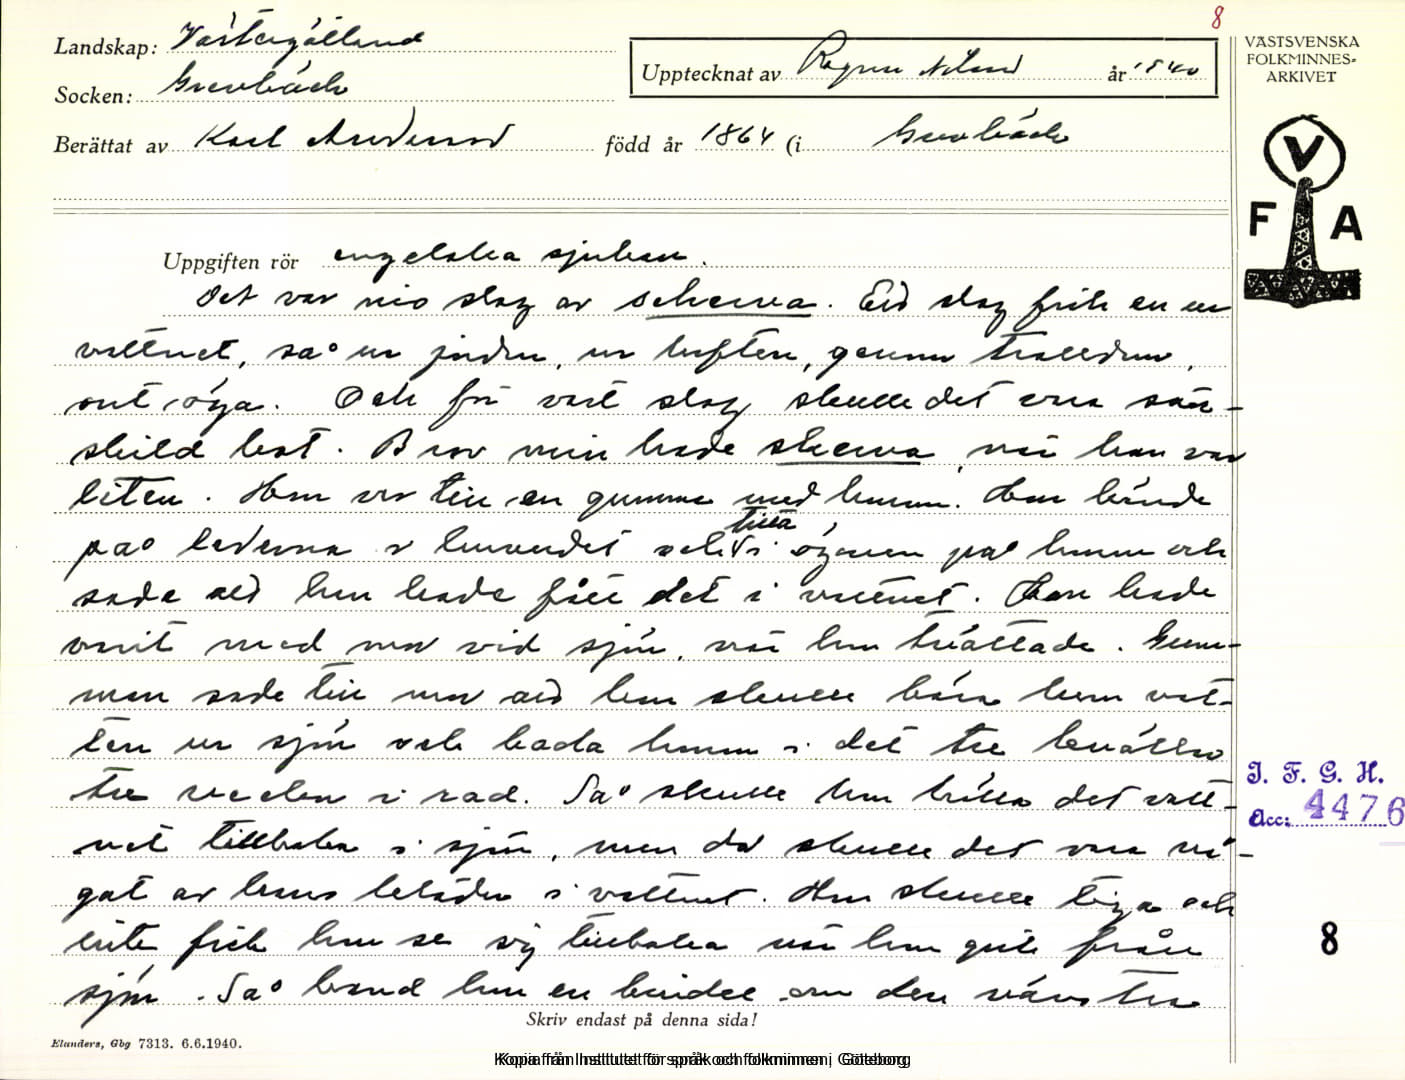 8
Landskap: Västergötland
Socken: Grevbäck
Upptecknat av Ragnar Nilsson år 1940
Berättat av Karl Andersson född år 1864 (i Grevbäck
VÄSTSVENSKA
FOLKMINNES-
ARKIVET
V
F A
Uppgiften rör engelska sjukan.
Det var nio slag av skerva. Eid slag fick en ur
vattnet, sa° ur jorden, ur luften, genom
ont öga. Och för vart slag skulle det vara sär-
skild bot. Bror min hade skerva när han var
liten. Hon var till en gumma med honom. Hon kände
pa° lederna och titta i ögonen pa° honom och
sade aed han hade fått det i vattnet. Hon hade
varit med mor vid sjön, när hon tvättade. Gum-
man sade till mor aed hon skulle bära hem vat-
ten ur sjön och bada honom i det tre kvällar
tre veckor i rad. Sa° skulle hon hälla det vatt-
net tillbaka i sjön, men då skulle det vara nå-
got av hans kläder i vattnet. Hon skulle tiga och
inte fick hon se sig tillbaka när hon gick från
sjön. Sa° band hon en bindel om den vänstra
Skriv endast på denna sida!
I. F. G. H.
Acc: 4476
8
Elanders, Gbg 7313. 6.6.1940.
Kopia från Institutet för språk och folkminnen, Göteborg